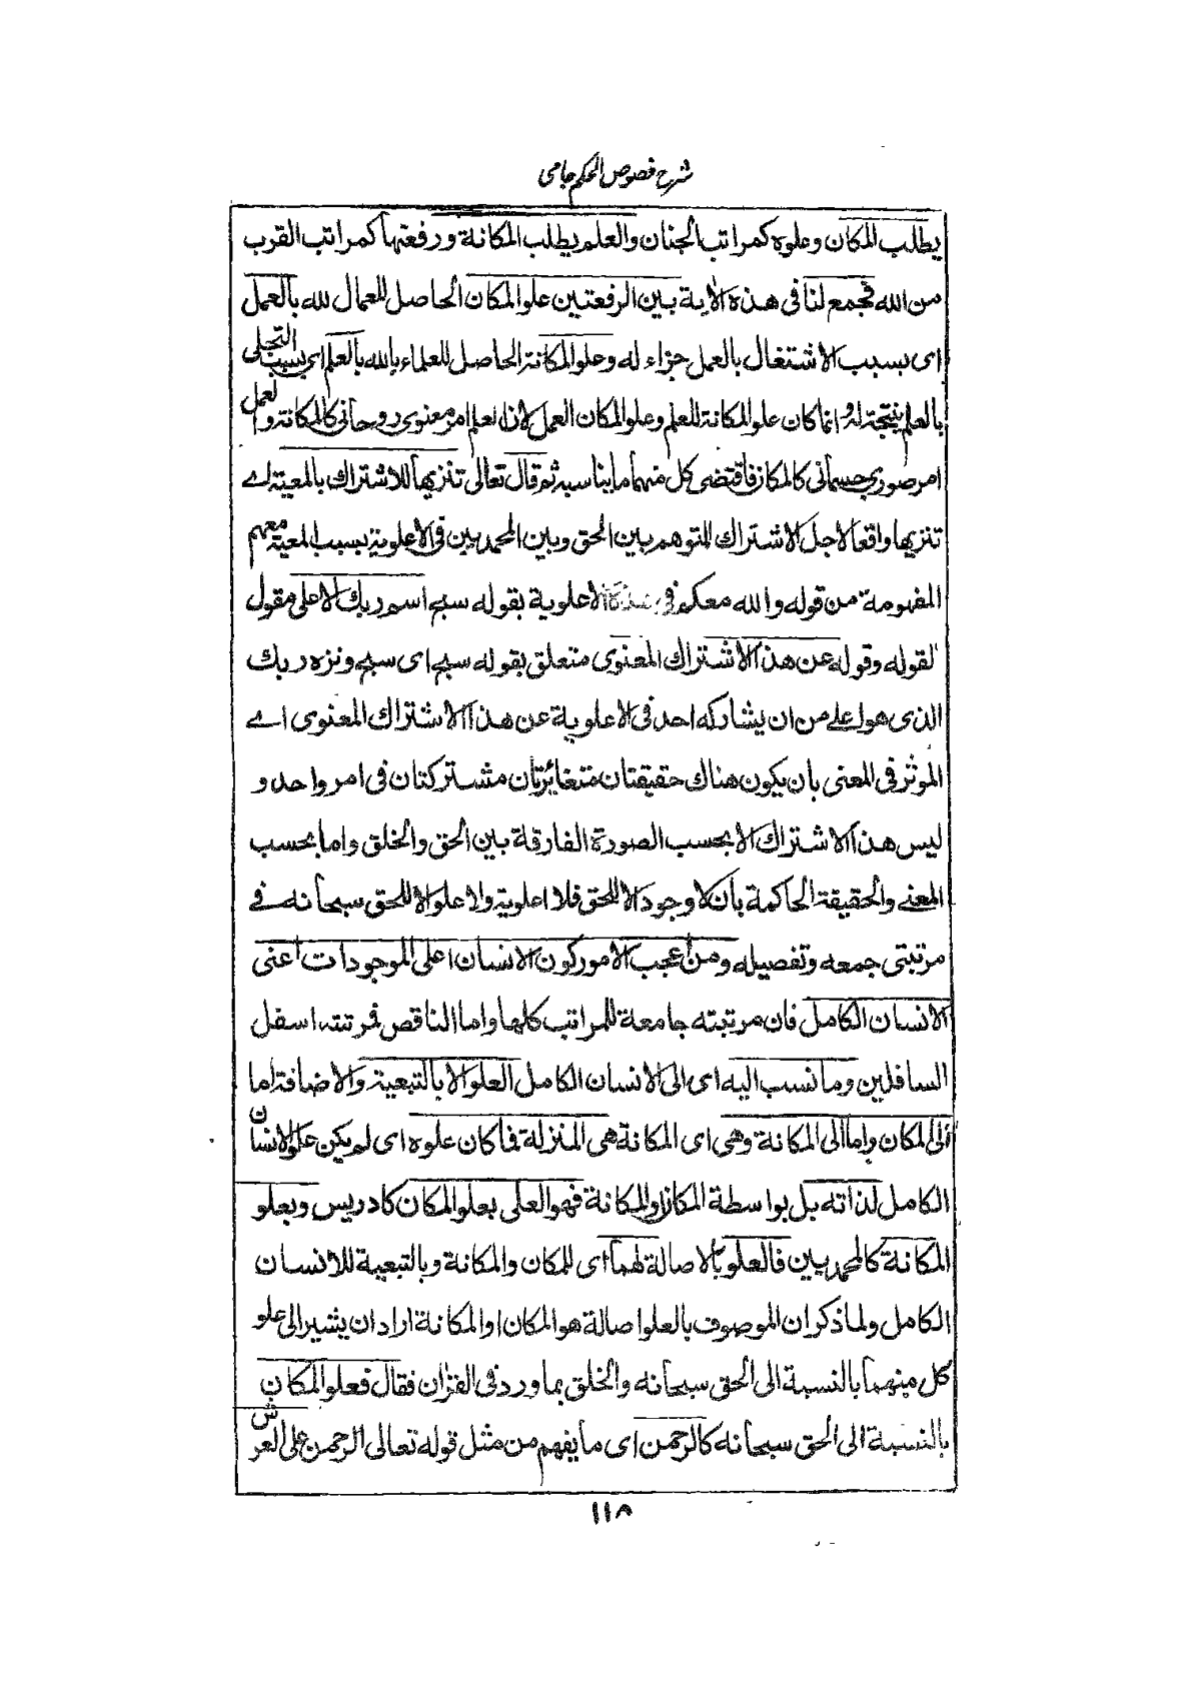 شرح فصوص الحكم جامى
يطلب المكان وعلوه كمراتب الجنان والعلم يطلب المكانة ورفعتها كمراتب القرب
من الله فجمع لنا فى هذه الاية بين الرفعتين علو المكان الحاصل للعمال لله بالعمل
اى بسبب الاشتغال بالعمل جزاء له وعلو المكانة الحاصل للعلماء بالله بالعلم اى بسبب التجلى
بالعلم نتيجة له وانما كان علو المكانة للعلم وعلو المكان العمل لان العلم امر معنوى روحانى كالمكانة والعمل
امر صورى جسمانى كالمكان فاقتضى كل منهما ما يناسبه ثم قال تعالى تنزيها للاشتراك بالمعية اے
تنزيها واقعا لاجل الاشتراك المتوهم بين الحق وبين المحمديين فى الاعلوية بسبب المعية معهم
المفهومة من قوله والله معكم فى هذه الاعلوية بقوله سبح اسم ربك الاعلى مقول
لقوله وقوله عن هذا الاشتراك المعنوى متعلق بقوله سبح اى سبح ونزه ربك
الذى هو اعلى من ان يشاركه احد فى الاعلوية عن هذا الاشتراك المعنوى اے
الموثر فى المعنى بان يكون هناك حقيقتان متغائرتان مشتركتان فى امر واحد و
ليس هذا الاشتراك الا بحسب الصورة الفارقة بين الحق والخلق واما بحسب
المعنے والحقيقة الحاكمة بان لا وجود الا للحق فلا اعلوية ولا علو الا للحق سبحانه فے
مرتبتى جمعه وتفصيله ومن اعجب الامور كون الانسان اعلى الموجودات اعنى
الانسان الكامل فان مرتبته جامعة للمراتب كلها واما الناقص فمرتبته اسفل
السافلين وما نسب اليه اى الى الانسان الكامل العلو الا بالتبعية والاضافة اما
الى المكان واما الى المكانة وهى اى المكانة هى المنزلة فما كان علوه اى لم يكن علو الانسان
الكامل لذاته بل بواسطة المكان والمكانة فهو العلى بعلو المكان كادريس وبعلو
المكانة كالمحمديين فالعلو بالاصالة لهما اى للمكان والمكانة وبالتبعية للانسان
الكامل ولما ذكر ان الموصوف بالعلو اصالة هو المكان او المكانة اراد ان يشير الى علو
كل منهما بالنسبة الى الحق سبحانه والخلق بما ورد فى القران فقال فعلو المكان
بالنسبة الى الحق سبحانه كالرحمن اى ما يفهم من مثل قوله تعالى الرحمن على العرش
١١٨